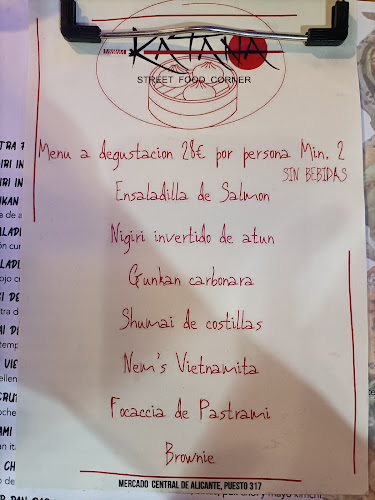 KATANA
STREET FOOD CORNER
Menu a degustacion 28€ por persona Min. 2
SIN BEBIDAS
Ensaladilla de Salmon
Nigiri invertido de atun
Gunkan carbonara
Shumai de costillas
Nem's Vietnamita
Focaccia de Pastrami
Brownie
MERCADO CENTRAL DE ALICANTE, PUESTO 317